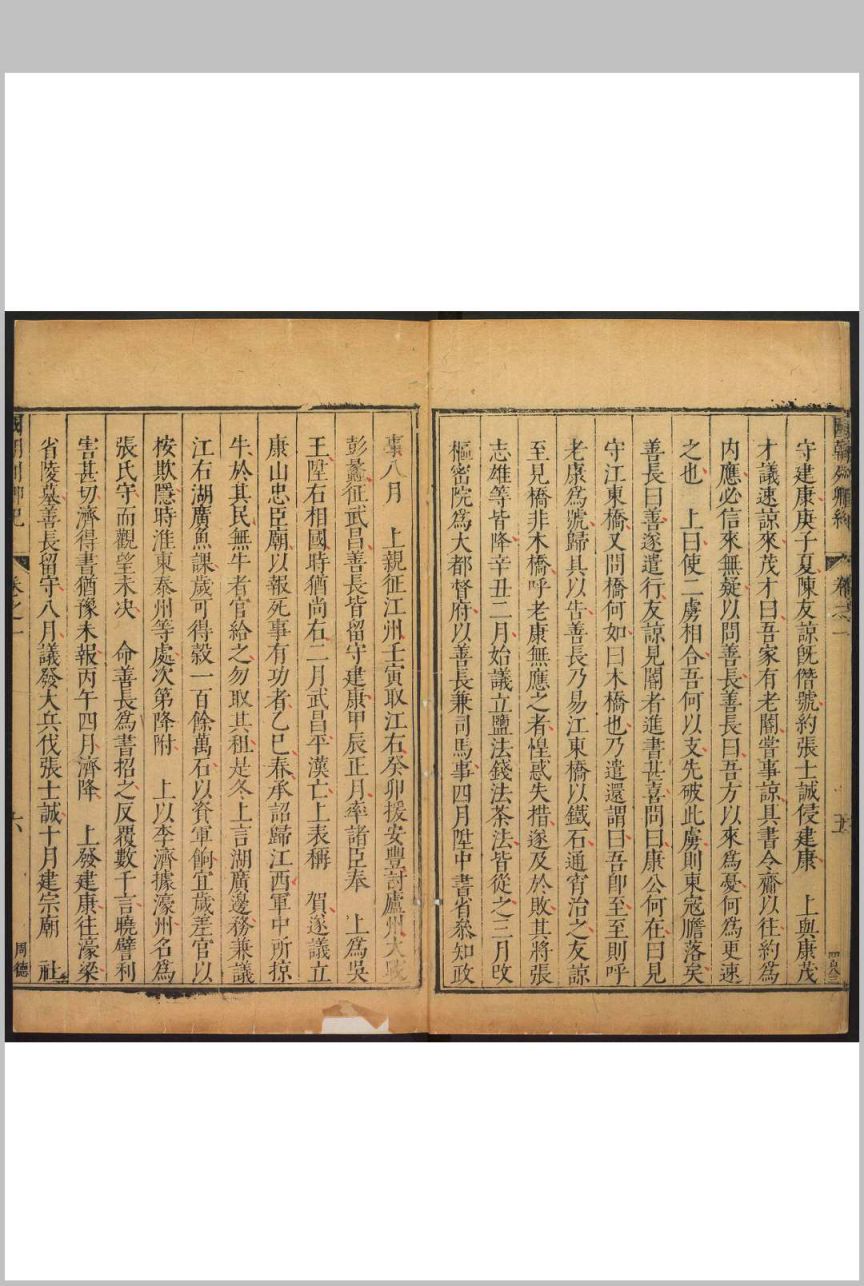 守建康庚子夏陳友諒既僭號約張士誠侵建康　上與康茂
才議速諒來茂才曰吾家有老閽嘗事諒具書令齎以往約為
內應必信來無疑以問善長善長曰吾方以來為憂何為更速
之也　上曰使二虜相合吾何以支先破此虜則東寇膽落矣
善長曰善遂遣行友諒見閽者進書甚喜問曰康公何在曰見
守江東橋又問橋何如曰木橋也乃遣還謂曰吾即至至則呼
老康為號歸具以告善長乃易江東橋以鐵石通宵治之友諒
至見橋非木橋呼老康無應之者惶惑失措遂及於敗其將張
志雄等皆降辛丑二月始議立鹽法錢法茶法皆從之三月改
樞密院為大都督府以善長兼司馬事四月陞中書省叅知政
事八月　上親征江州壬寅取江右癸卯援安豐討廬州大戰
彭蠡征武昌善長皆留守建康甲辰正月率諸臣奉　上為吳
王陞右相國時猶尚右二月武昌平漢亡上表稱　賀遂議立
康山忠臣廟以報死事有功者乙巳春承詔歸江西軍中所掠
牛於其民無牛者官給之勿取其租是冬上言湖廣邊務兼議
江右湖廣魚課歲可得穀一百餘萬石以資軍餉宜歲差官以
按欺隱時淮東泰州等處次第降附　上以李濟據濠州名為
張氏守而觀望未決　命善長為書招之反覆數千言曉譬利
害甚切濟得書猶豫未報丙午四月濟降　上發建康往濠梁
省陵墓善長留守八月議發大兵伐張士誠十月建宗廟　社
國朝列卿紀
卷之一
六
周德